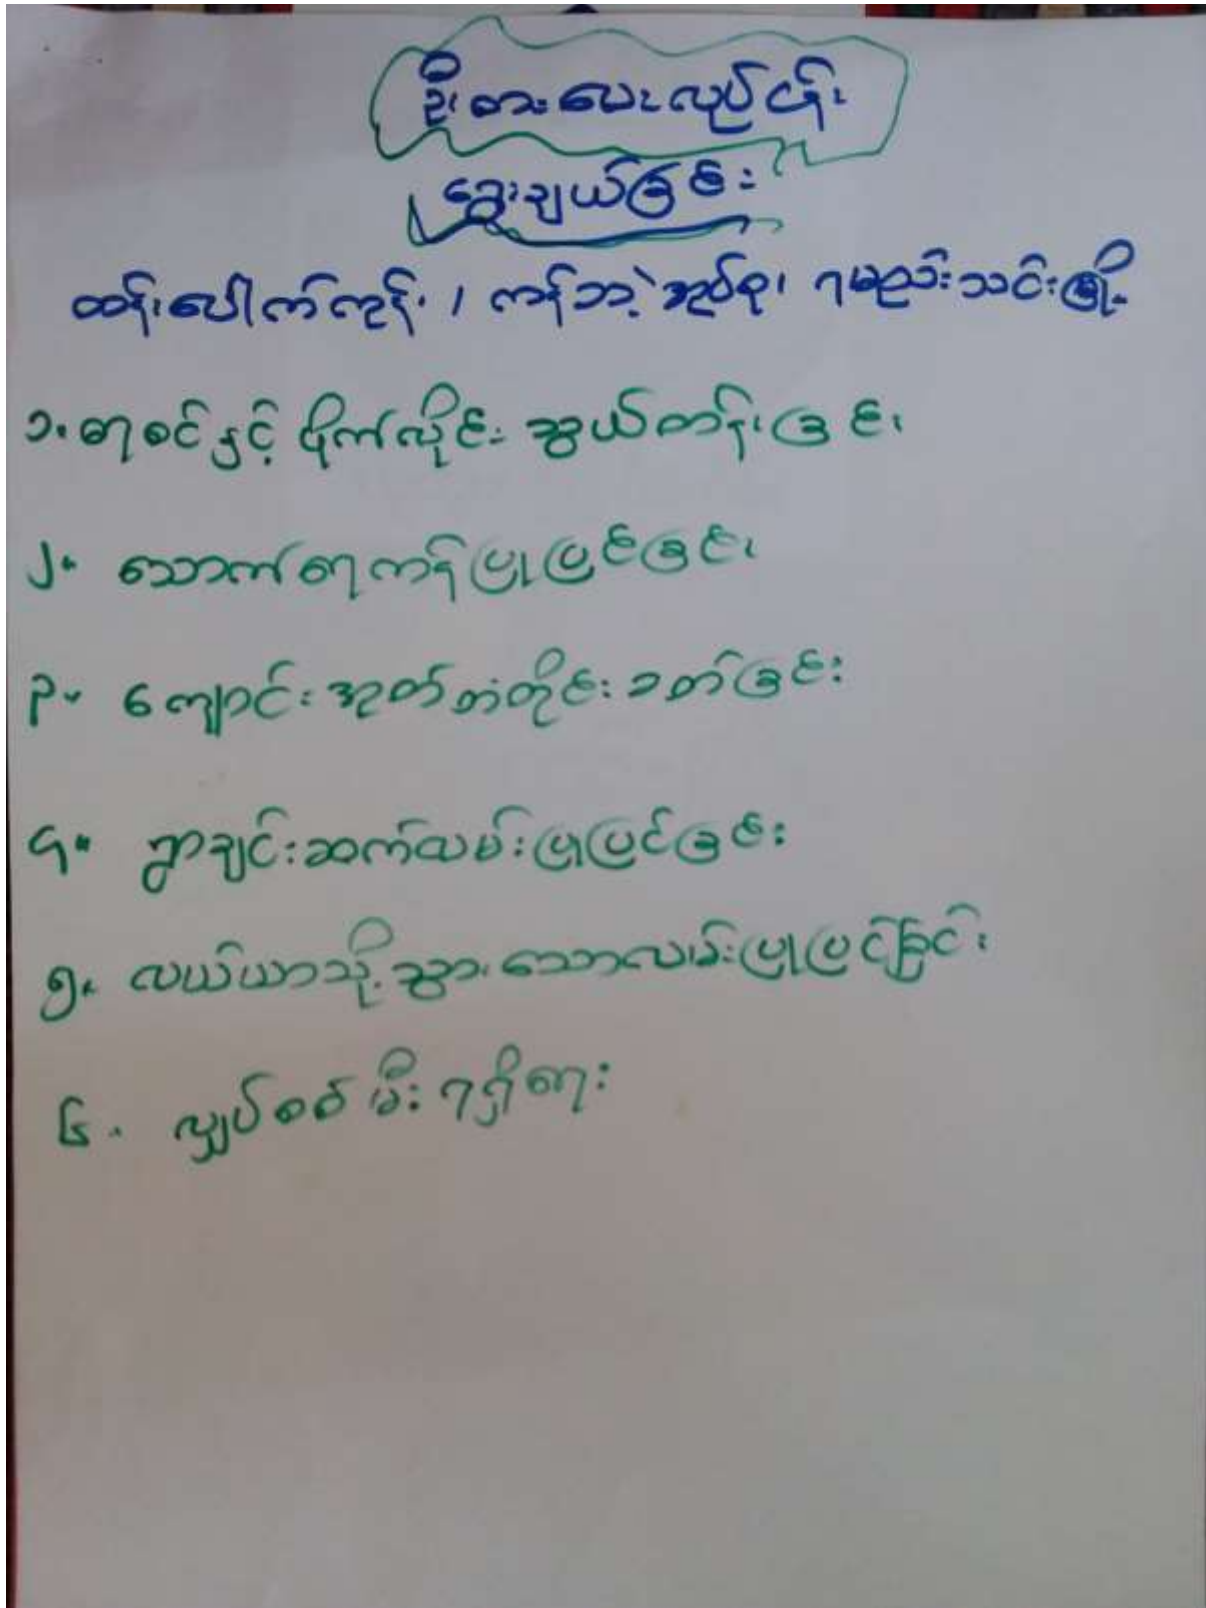 ဦးစားပေးလုပ်ငန်း
ရွေးချယ်ခြင်း
ထန်းပေါက်ကုန်း၊ ကန်ဘဲ့အုပ်စု၊ ရမည်းသင်းမြို့
၁။ ရေစင်နှင့် ပိုက်လိုင်း သွယ်တန်းခြင်း
၂။ သောက်ရေကန်ပြုပြင်ခြင်း
၃။ ကျောင်းအုတ်တံတိုင်းခတ်ခြင်း
၄။ ရွာချင်းဆက်လမ်းပြုပြင်ခြင်း
၅။ လယ်ယာသို့သွားသောလမ်းပြုပြင်ခြင်း
၆။ လျှပ်စစ်မီးရရှိရေး